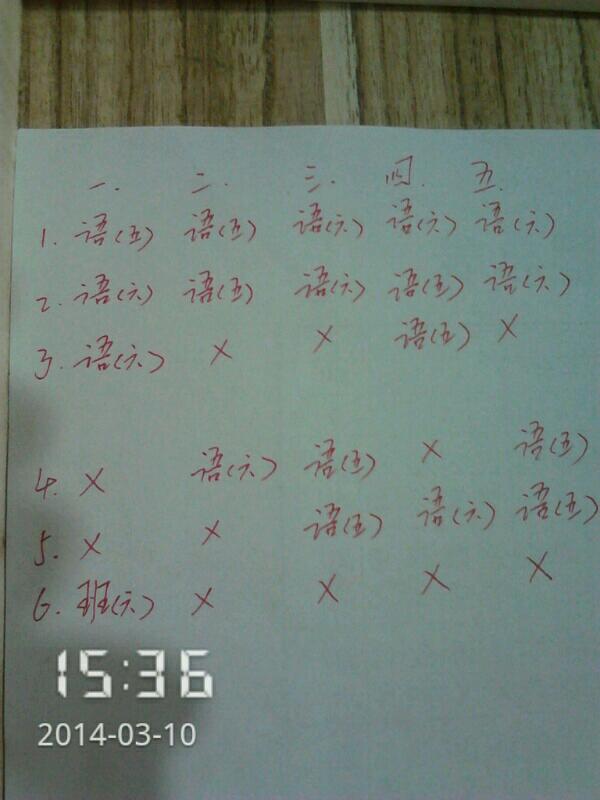 一. 二. 三. 四. 五.
1. 语(五) 语(五) 语(六) 语(六) 语(六)
2. 语(六) 语(五) 语(六) 语(五) 语(六)
3. 语(六) × × 语(五) ×
4. × 语(六) 语(五) × 语(五)
5. × × 语(五) 语(六) 语(五)
6. 班(六) × × × ×
15:36
2014-03-10